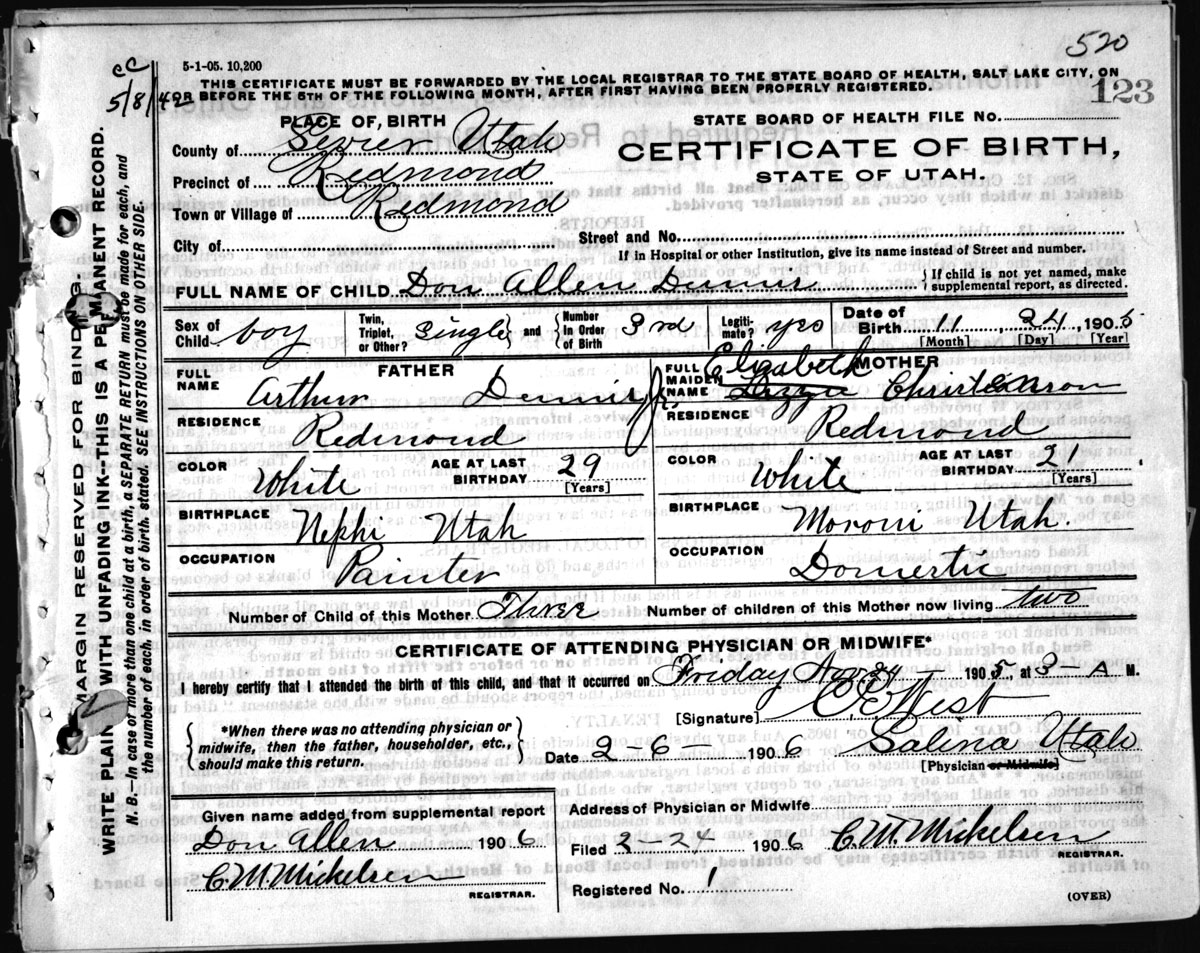 520
5-1-05. 10,200
cc
5/8/42
THIS CERTIFICATE MUST BE FORWARDED BY THE LOCAL REGISTRAR TO THE STATE BOARD OF HEALTH, SALT LAKE CITY, ON
OR BEFORE THE 5TH OF THE FOLLOWING MONTH, AFTER FIRST HAVING BEEN PROPERLY REGISTERED.
123
PLACE OF BIRTH
STATE BOARD OF HEALTH FILE No.
County of Sevier Utah
CERTIFICATE OF BIRTH,
Precinct of Redmond
STATE OF UTAH.
Town or Village of Redmond
City of
Street and No.
If in Hospital or other Institution, give its name instead of Street and number.
FULL NAME OF CHILD Don Allen Dennis { If child is not yet named, make supplemental report, as directed.
Sex of Child boy Twin, Triplet, or Other? Single and { Number In Order of Birth 3rd Legitimate? yes Date of Birth 11 , 24 , 1905
[Month] [Day] [Year]
FATHER
MOTHER
FULL NAME Arthur Dennis Jr.
FULL MAIDEN NAME Elizabeth Lizzie Christenson
RESIDENCE Redmond
RESIDENCE Redmond
COLOR White AGE AT LAST BIRTHDAY 29 [Years]
COLOR White AGE AT LAST BIRTHDAY 21 [Years]
BIRTHPLACE Nephi Utah
BIRTHPLACE Moroni Utah.
OCCUPATION Painter
OCCUPATION Domestic
Number of Child of this Mother Three Number of children of this Mother now living two
CERTIFICATE OF ATTENDING PHYSICIAN OR MIDWIFE*
I hereby certify that I attended the birth of this child, and that it occurred on Friday Nov. 24 1905, at 3-A M.
{ *When there was no attending physician or midwife, then the father, householder, etc., should make this return. }
[Signature] C E West
Date 2-6 1906 Salina Utah
[Physician or Midwife]
Given name added from supplemental report
Don Allen 1906
C.M. Mickelsen
REGISTRAR.
Address of Physician or Midwife
Filed 2-24 1906 C.M. Mickelsen
REGISTRAR.
Registered No. 1
(OVER)
MARGIN RESERVED FOR BINDING.
WRITE PLAIN WITH UNFADING INK--THIS IS A PERMANENT RECORD.
N. B.—In case of more than one child at a birth, a SEPARATE RETURN must be made for each, and
the number of each, in order of birth, stated. SEE INSTRUCTIONS ON OTHER SIDE.